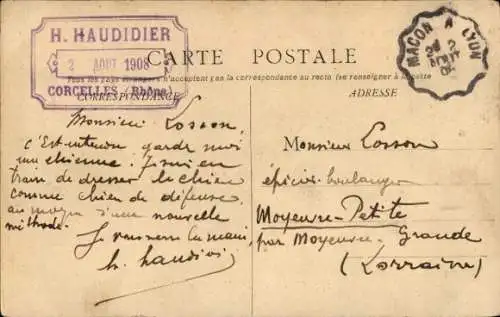 H. HAUDIDIER
2 AOUT 1908
CORCELLES (Rhône)
CARTE POSTALE
Tous les pays étrangers n'acceptent pas la correspondance au recto (se renseigner à la poste)
CORRESPONDANCE
ADRESSE
MACON A LYON
2 AOUT 08
Monsieur Losson,
c'est entendu garde moi
une chienne. Je suis en
train de dresser le chien
comme chien de défense,
au moyen d'une nouvelle
méthode.
Je vous serre la main,
h. haudidi
Monsieur Losson
épicier-boulanger
Moyeuvre-Petite
par Moyeuvre-Grande
(Lorraine)